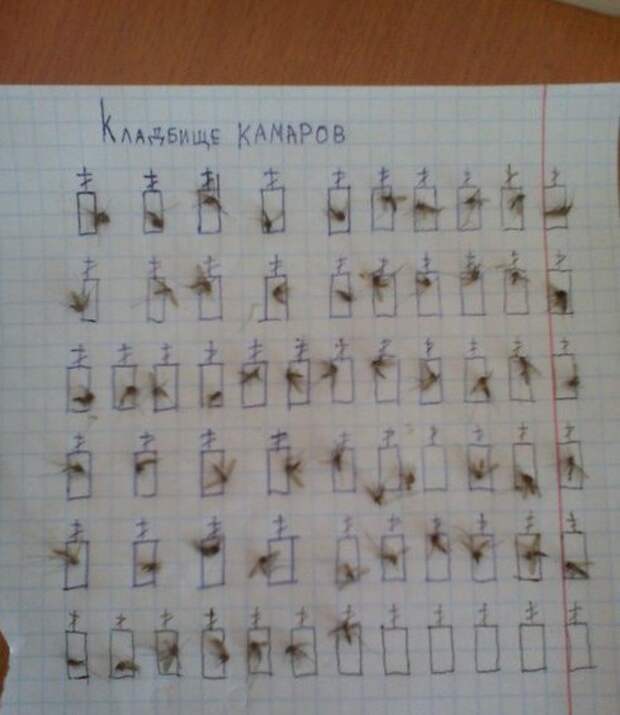 Кладбище камаров